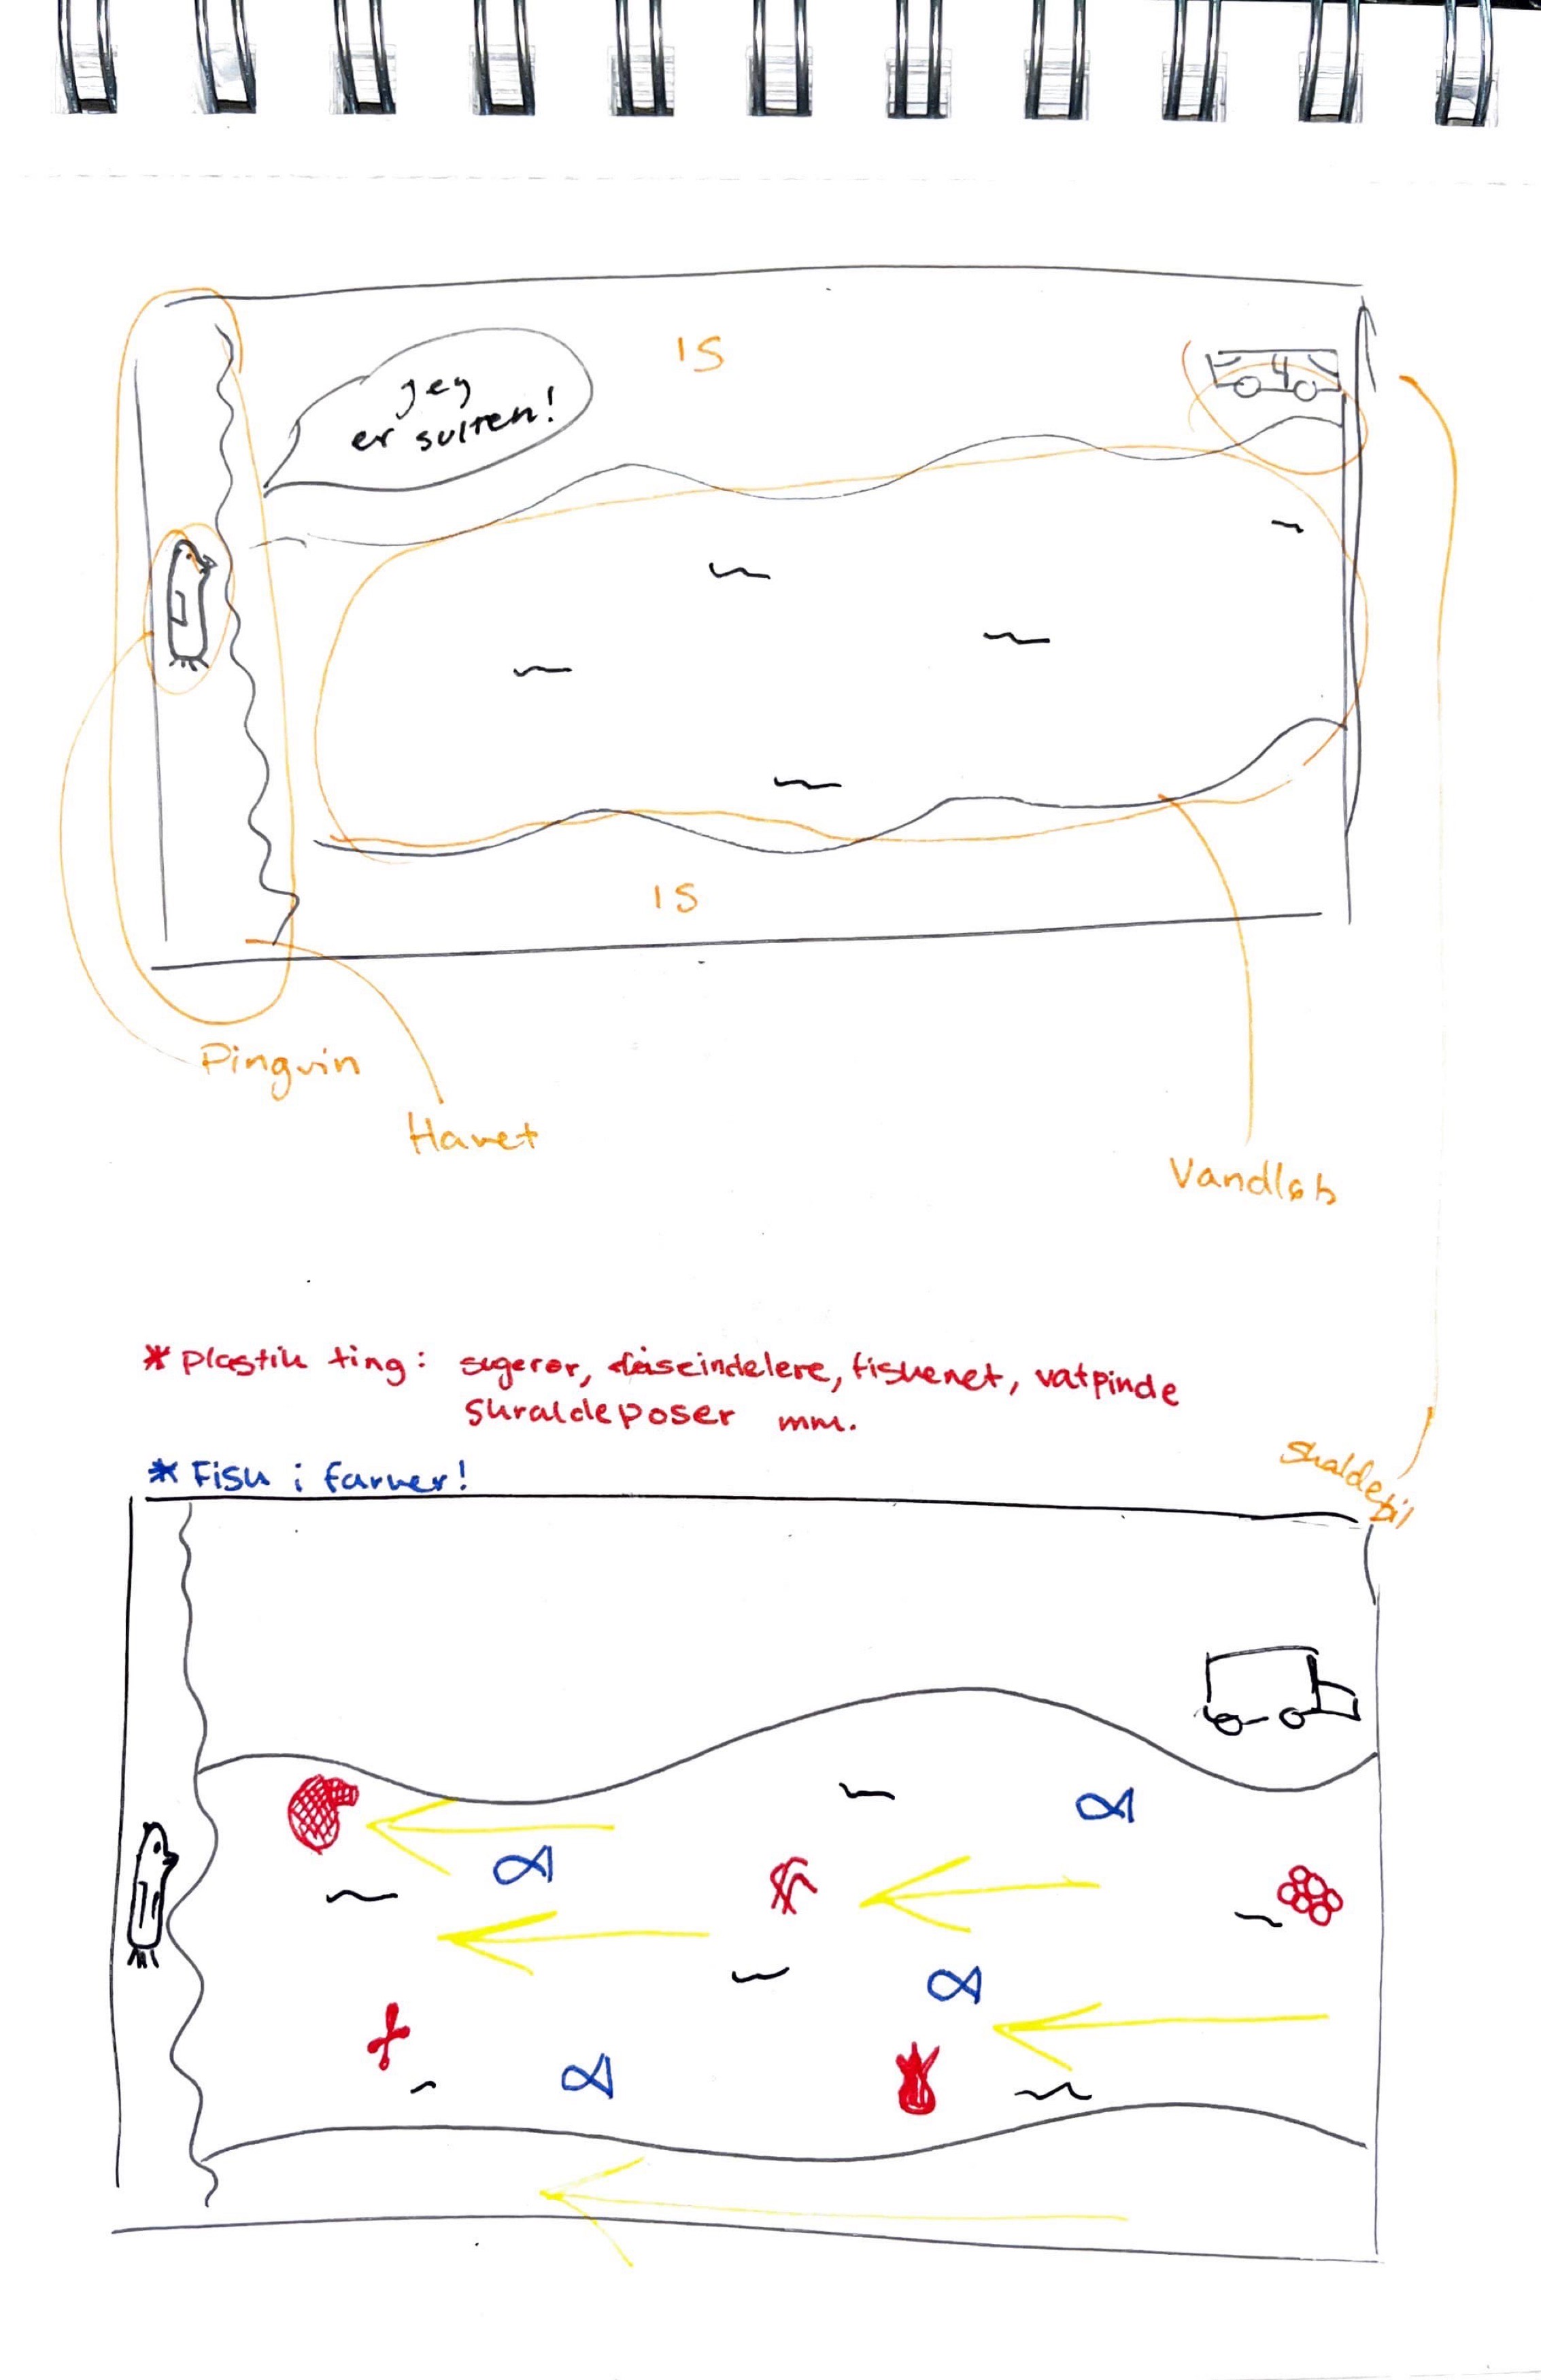 IS
Jeg
er sulten!
IS
Pingvin
Havet
Vandløb
* Plastik ting: sugerør, dåseindelere, fiskenet, vatpinde
Skraldeposer mm.
Skaldebil
* Fisk i farver!